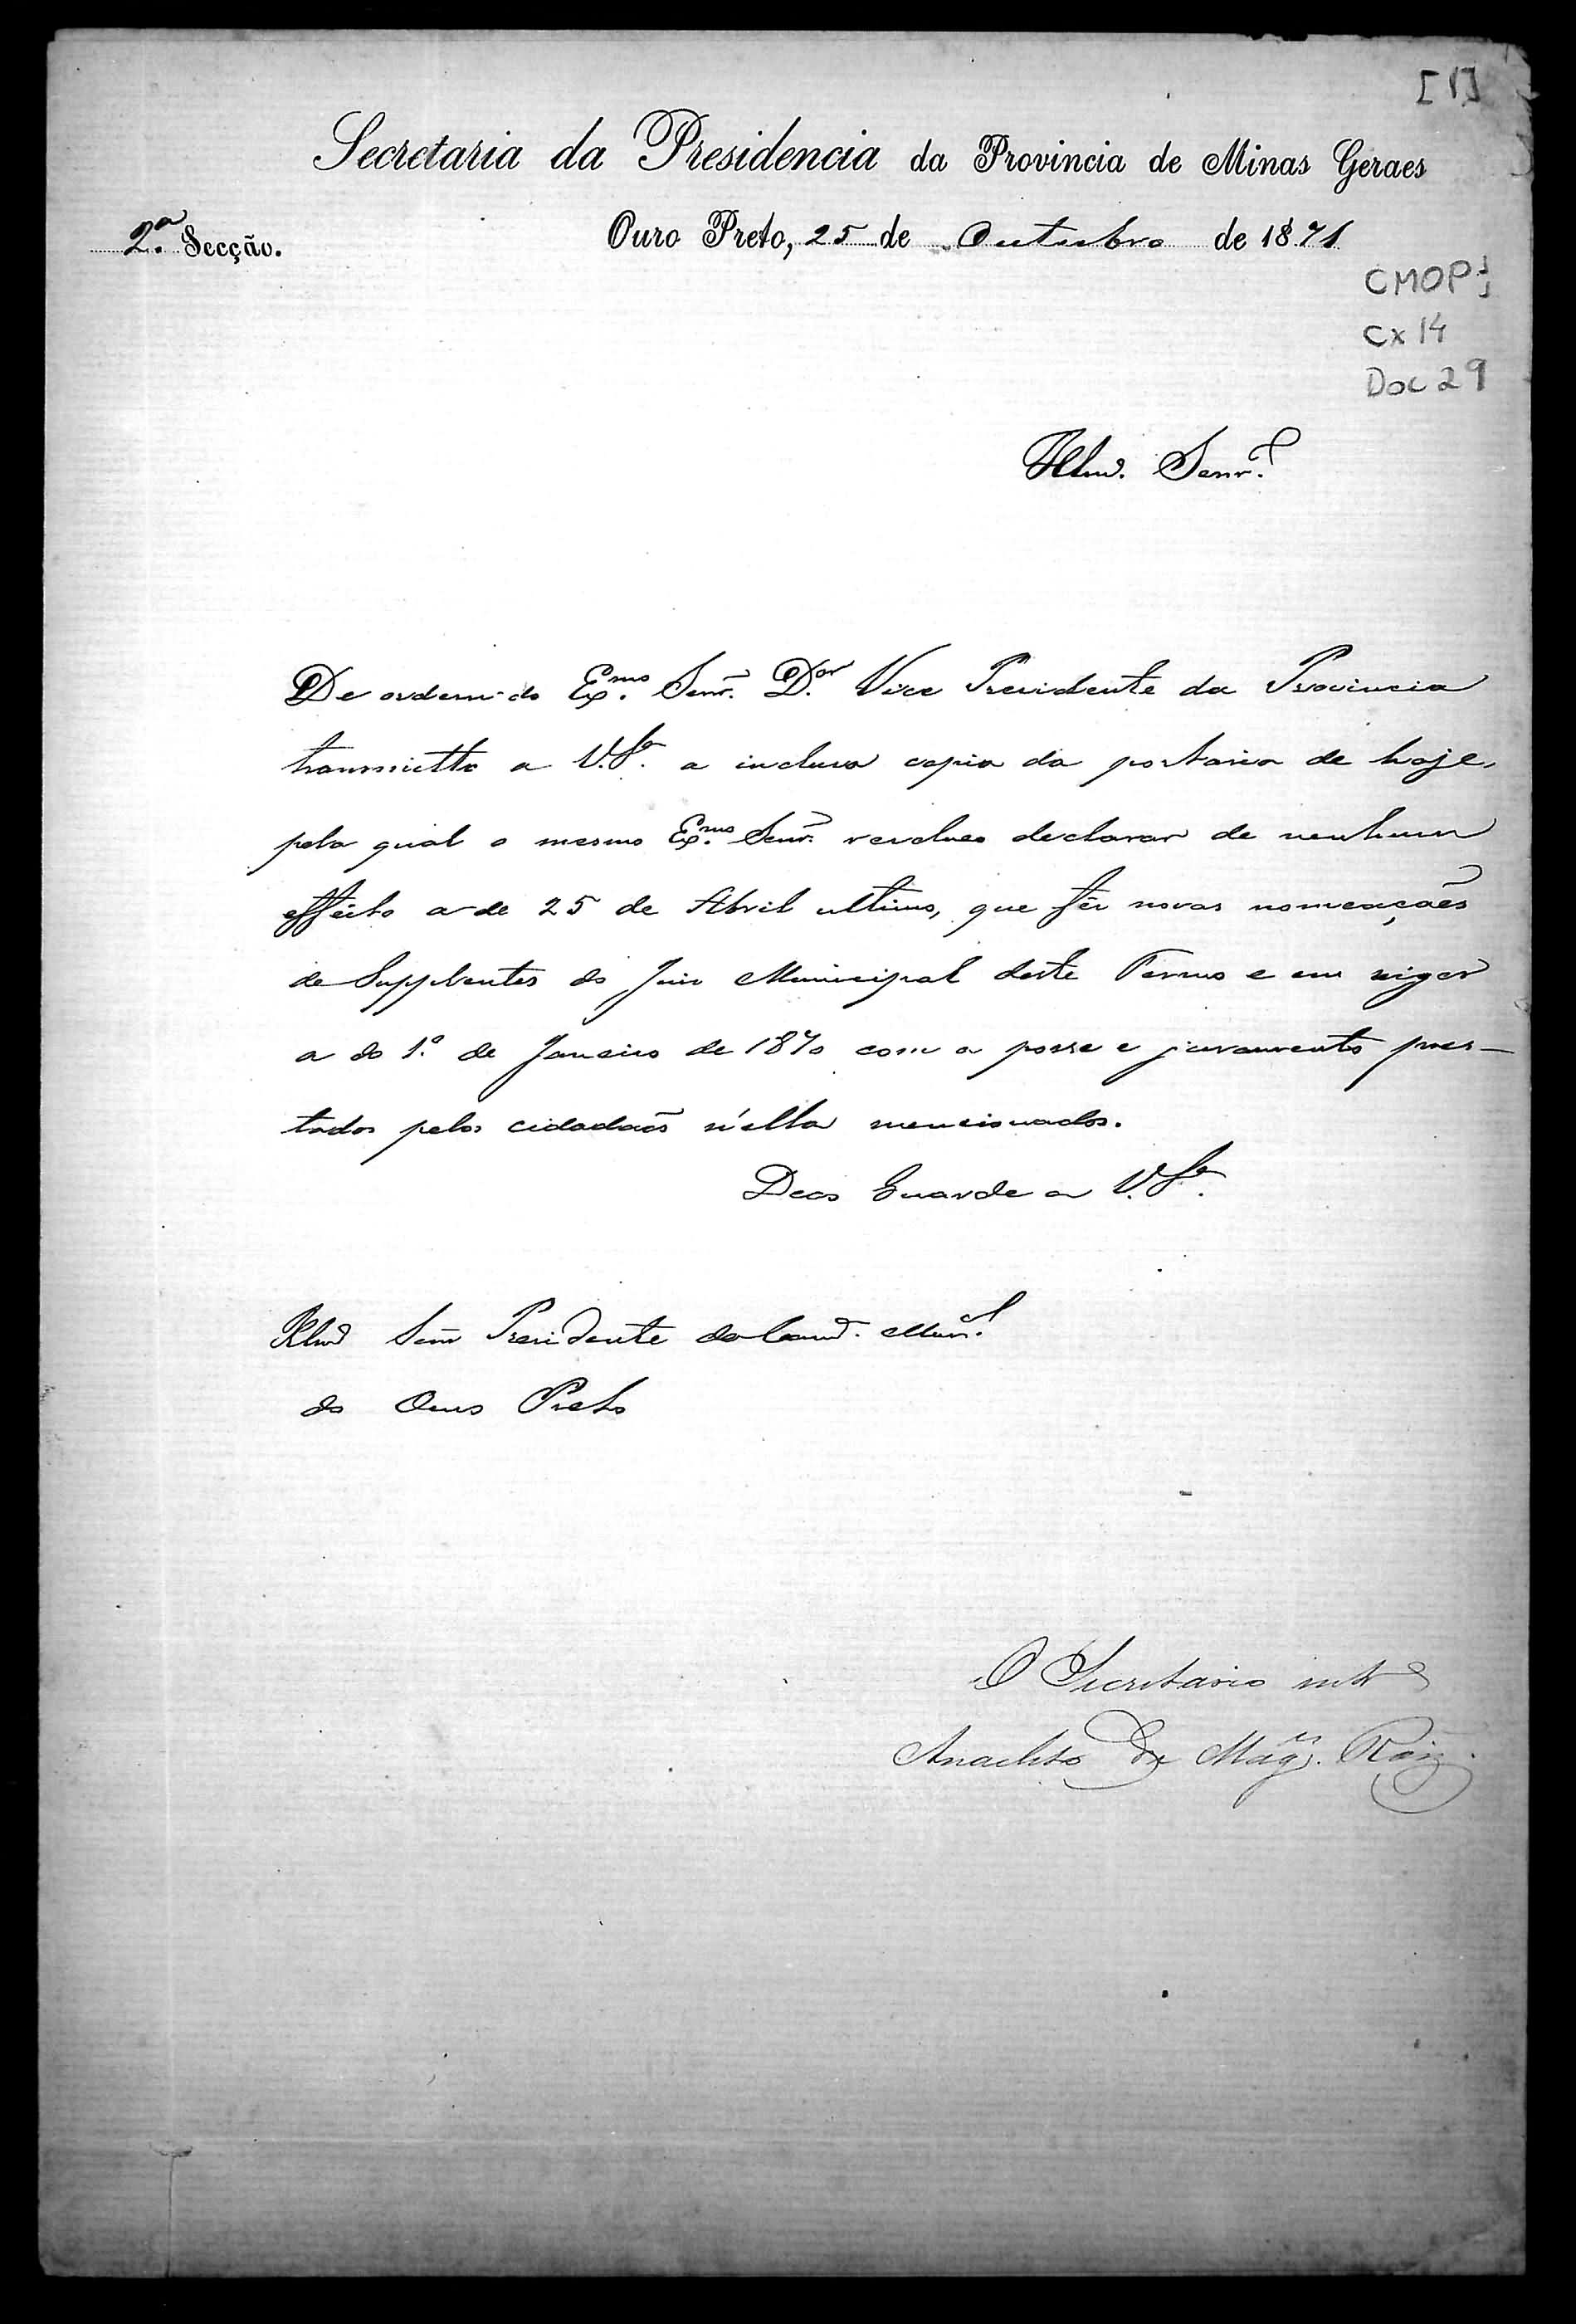 [1]
Secretaria da Presidencia da Provincia de Minas Geraes
2.ª Secção.
Ouro Preto, 25 de Outubro de 1871
CMOP
Cx 14
Doc 29
Illmº. Senr.
De ordem do Exmo. Senr. Dor. Vice Presidente da Provincia
transmitto a V.Sª. a inclusa copia da portaria de hoje,
pela qual o mesmo Exmo. Senr. resolveo declarar de nenhum
effeito a de 25 de Abril ultimo, que fez novas nomeações
de Supplentes do Juiz Municipal deste Termo e em vigor
a do 1.º de Janeiro de 1870 com a posse e juramento pres-
tados pelos cidadãos n'ella mencionados.
Deos Guarde a V. Sª.
Illmº Senr Presidente da Camª. Munal.
do Ouro Preto
O Secretario intº
Anacleto de Mages. Roiz.